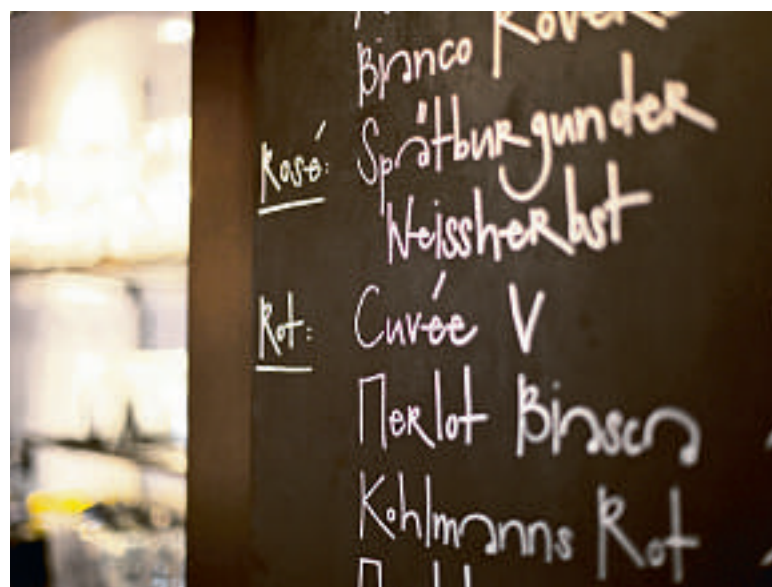 Bianco Rover
Rosé: Spätburgunder
Weissherbst
Rot: Cuvée V
Merlot Biasca
Kohlmanns Rot